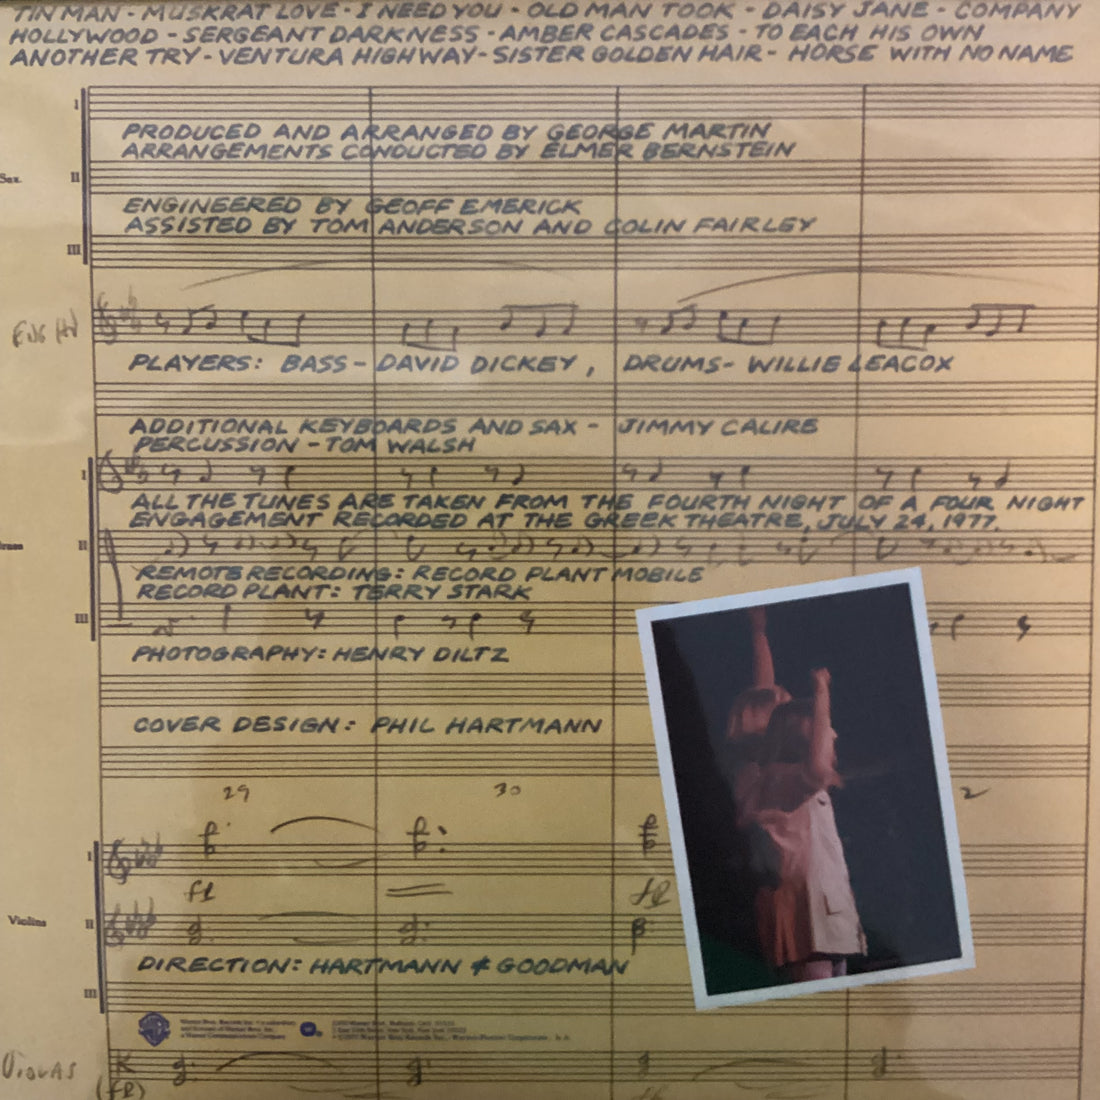 TIN MAN - MUSKRAT LOVE - I NEED YOU - OLD MAN TOOK - DAISY JANE - COMPANY
HOLLYWOOD - SERGEANT DARKNESS - AMBER CASCADES - TO EACH HIS OWN
ANOTHER TRY - VENTURA HIGHWAY - SISTER GOLDEN HAIR - HORSE WITH NO NAME
I
PRODUCED AND ARRANGED BY GEORGE MARTIN
ARRANGEMENTS CONDUCTED BY ELMER BERNSTEIN
Sax. II
ENGINEERED BY GEOFF EMERICK
ASSISTED BY TOM ANDERSON AND COLIN FAIRLEY
III
PLAYERS: BASS - DAVID DICKEY, DRUMS - WILLIE LEACOX
ADDITIONAL KEYBOARDS AND SAX - JIMMY CALIRE
PERCUSSION - TOM WALSH
I
ALL THE TUNES ARE TAKEN FROM THE FOURTH NIGHT OF A FOUR NIGHT
ENGAGEMENT RECORDED AT THE GREEK THEATRE, JULY 24, 1977.
II
REMOTE RECORDING: RECORD PLANT MOBILE
RECORD PLANT: TERRY STARK
III
PHOTOGRAPHY: HENRY DILTZ
COVER DESIGN: PHIL HARTMANN
29 30 2
I
Violins II
DIRECTION: HARTMANN & GOODMAN
III
VIOLAS